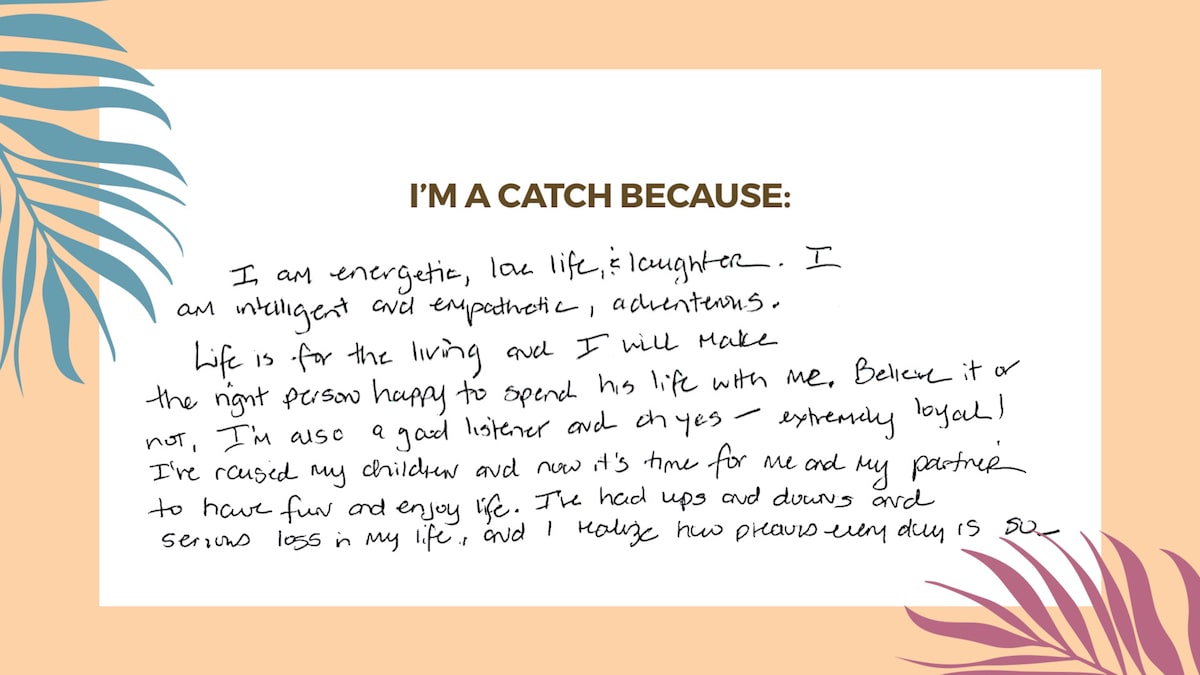 I'M A CATCH BECAUSE:
I am energetic, love life, & laughter. I
am intelligent and empathetic, adventerous.
Life is for the living and I will make
the right person happy to spend his life with me. Believe it or
not, I'm also a good listener and oh yes – extremely loyal!
I've raised my children and now it's time for me and my partner
to have fun and enjoy life. I've had ups and downs and
serious loss in my life, and I realize how precious every day is so